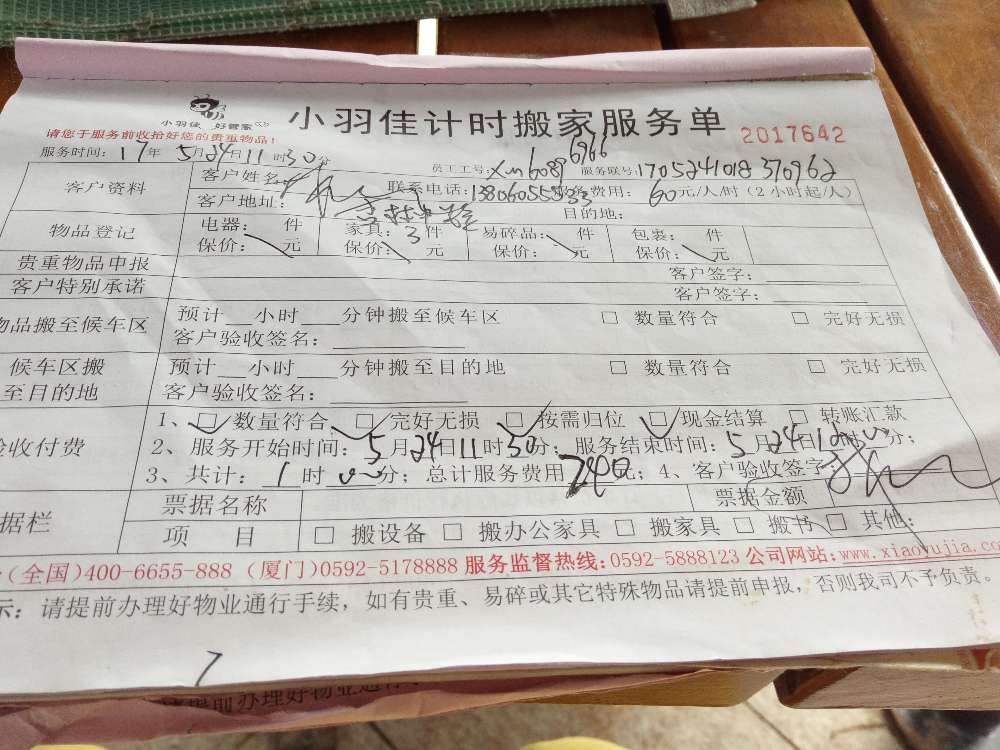 小羽佳 好管家
小羽佳计时搬家服务单
2017642
请您于服务前收拾好您的贵重物品!
服务时间: 17年 5月24日11时30分 员工工号: xm6089 6966 服务联号: 1705241018370962
客户资料 客户姓名: 联系电话: 服务费用: 60元/人/时(2小时起/人)
客户地址: 目的地:
物品登记 电器: 件 家具: 3件 易碎品: 件 包裹: 件
保价: 元 保价: 元 保价: 元 保价: 元
贵重物品申报 客户签字:
客户特别承诺 客户签字:
物品搬至候车区 预计 小时 分钟搬至候车区 □ 数量符合 □ 完好无损
客户验收签名:
候车区搬至目的地 预计 小时 分钟搬至目的地 □ 数量符合 □ 完好无损
客户验收签名:
验收付费 1、☑ 数量符合 ☑ 完好无损 ☑ 按需归位 ☑ 现金结算 □ 转账汇款
2、服务开始时间: 5月24日11时30分; 服务结束时间: 5月24日 时 分;
3、共计: 1时 分; 总计服务费用 240元; 4、客户验收签字:
据栏 票据名称 票据金额
项 目 □ 搬设备 □ 搬办公家具 □ 搬家具 □ 搬书 □ 其他:
(全国)400-6655-888 (厦门)0592-5178888 服务监督热线: 0592-5888123 公司网站: www.xiaoyujia.co
示: 请提前办理好物业通行手续,如有贵重、易碎或其它特殊物品请提前申报,否则我司不予负责。
前办理好物业通行